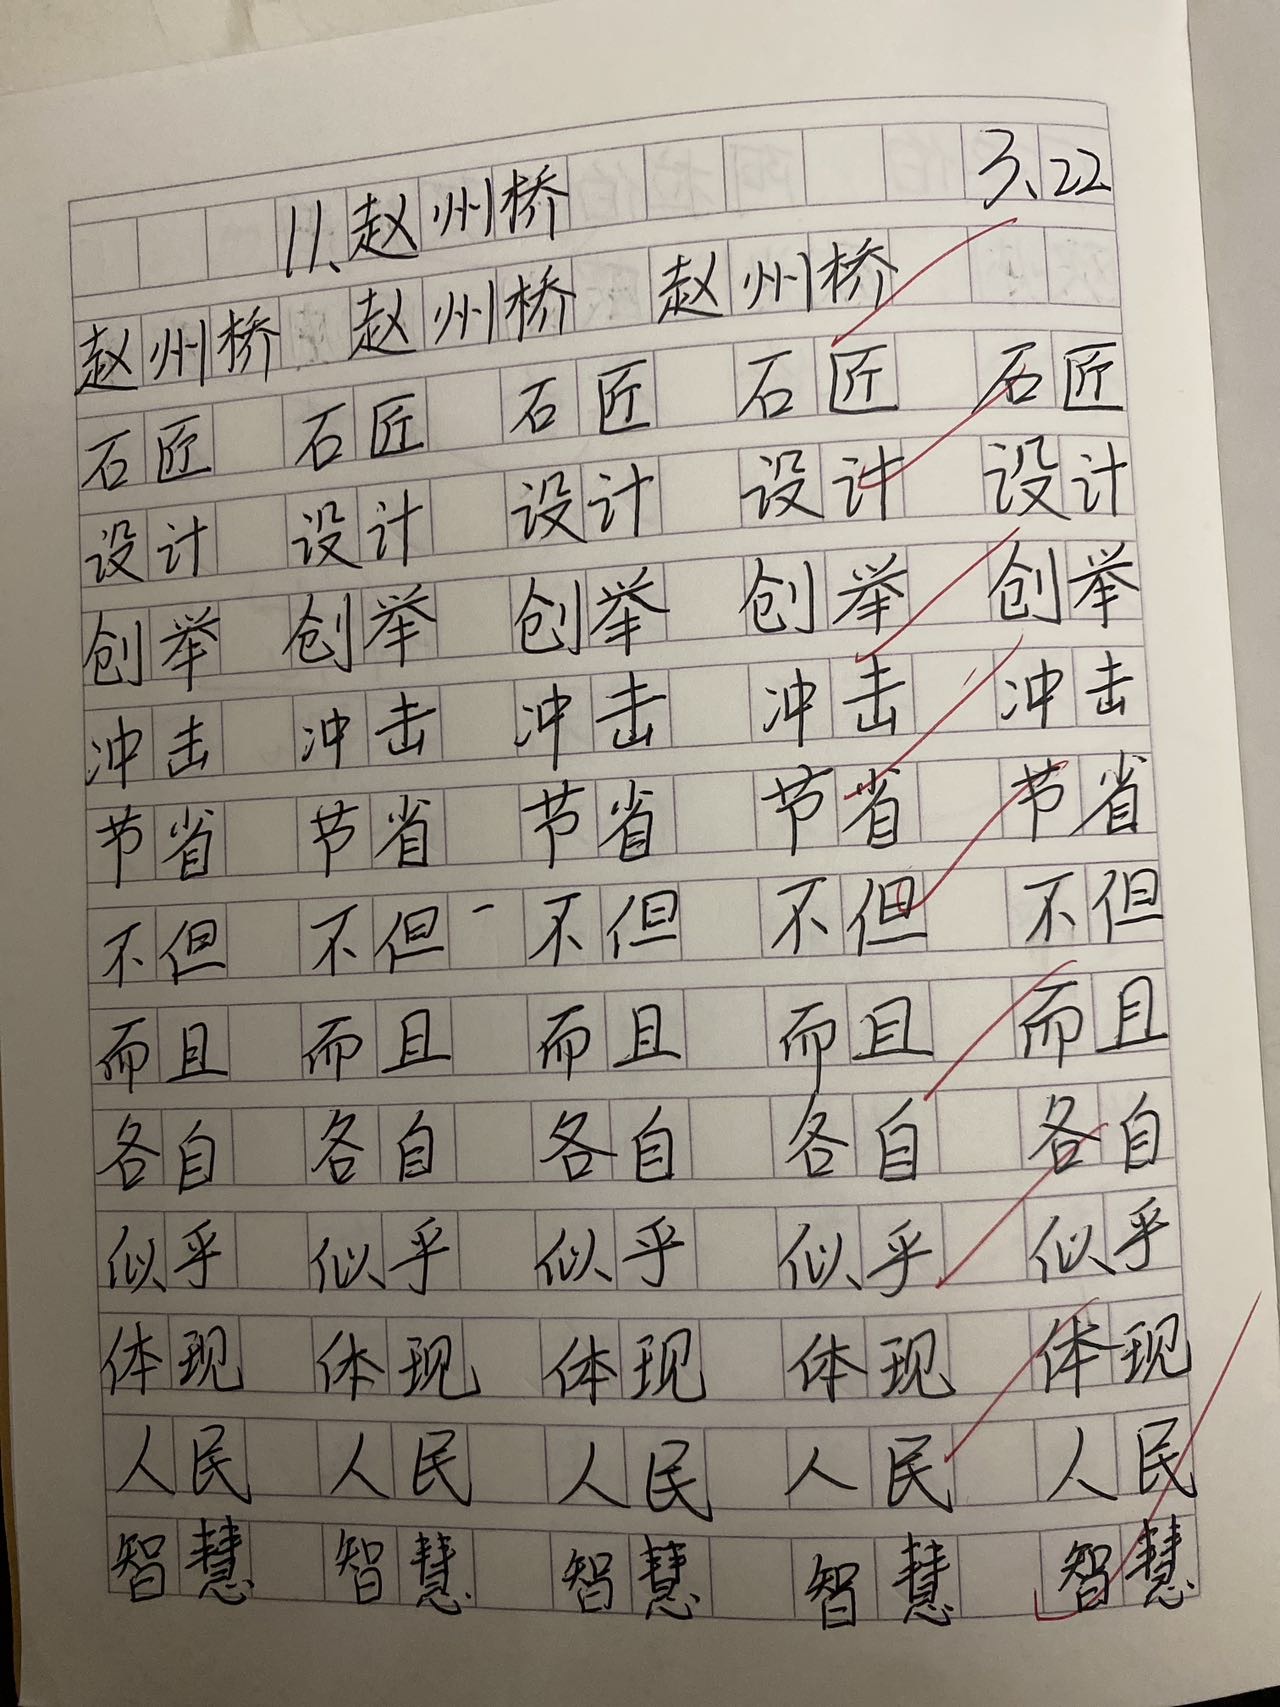 11、赵州桥 3、22
赵州桥 赵州桥 赵州桥
石匠 石匠 石匠 石匠 石匠
设计 设计 设计 设计 设计
创举 创举 创举 创举 创举
冲击 冲击 冲击 冲击 冲击
节省 节省 节省 节省 节省
不但 不但 不但 不但 不但
而且 而且 而且 而且 而且
各自 各自 各自 各自 各自
似乎 似乎 似乎 似乎 似乎
体现 体现 体现 体现 体现
人民 人民 人民 人民 人民
智慧 智慧 智慧 智慧 智慧